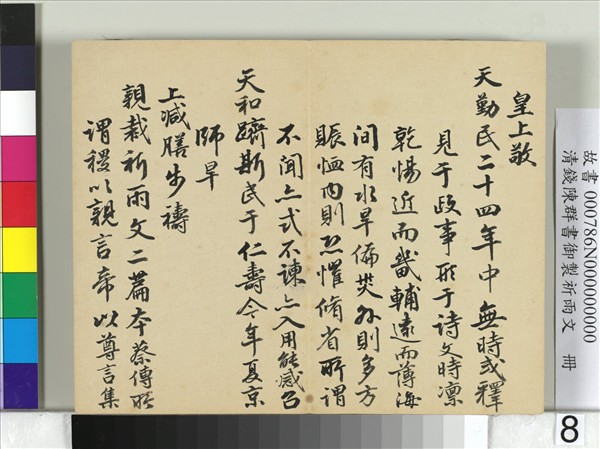 皇上敬
天勤民二十四年中無時或釋
見于政事形于詩文時凛
乾惕近而畿輔遠而薄海
間有水旱偏災外則多方
賑恤內則恐懼脩省所謂
不聞亦式不諫亦入用能感召
天和躋斯民于仁壽今年夏京
師旱
上減膳步禱
親裁祈雨文二篇本蔡傳所
謂稷以親言帝以尊言集
故書 000786N000000000
清錢陳群書御製祈雨文 冊
8